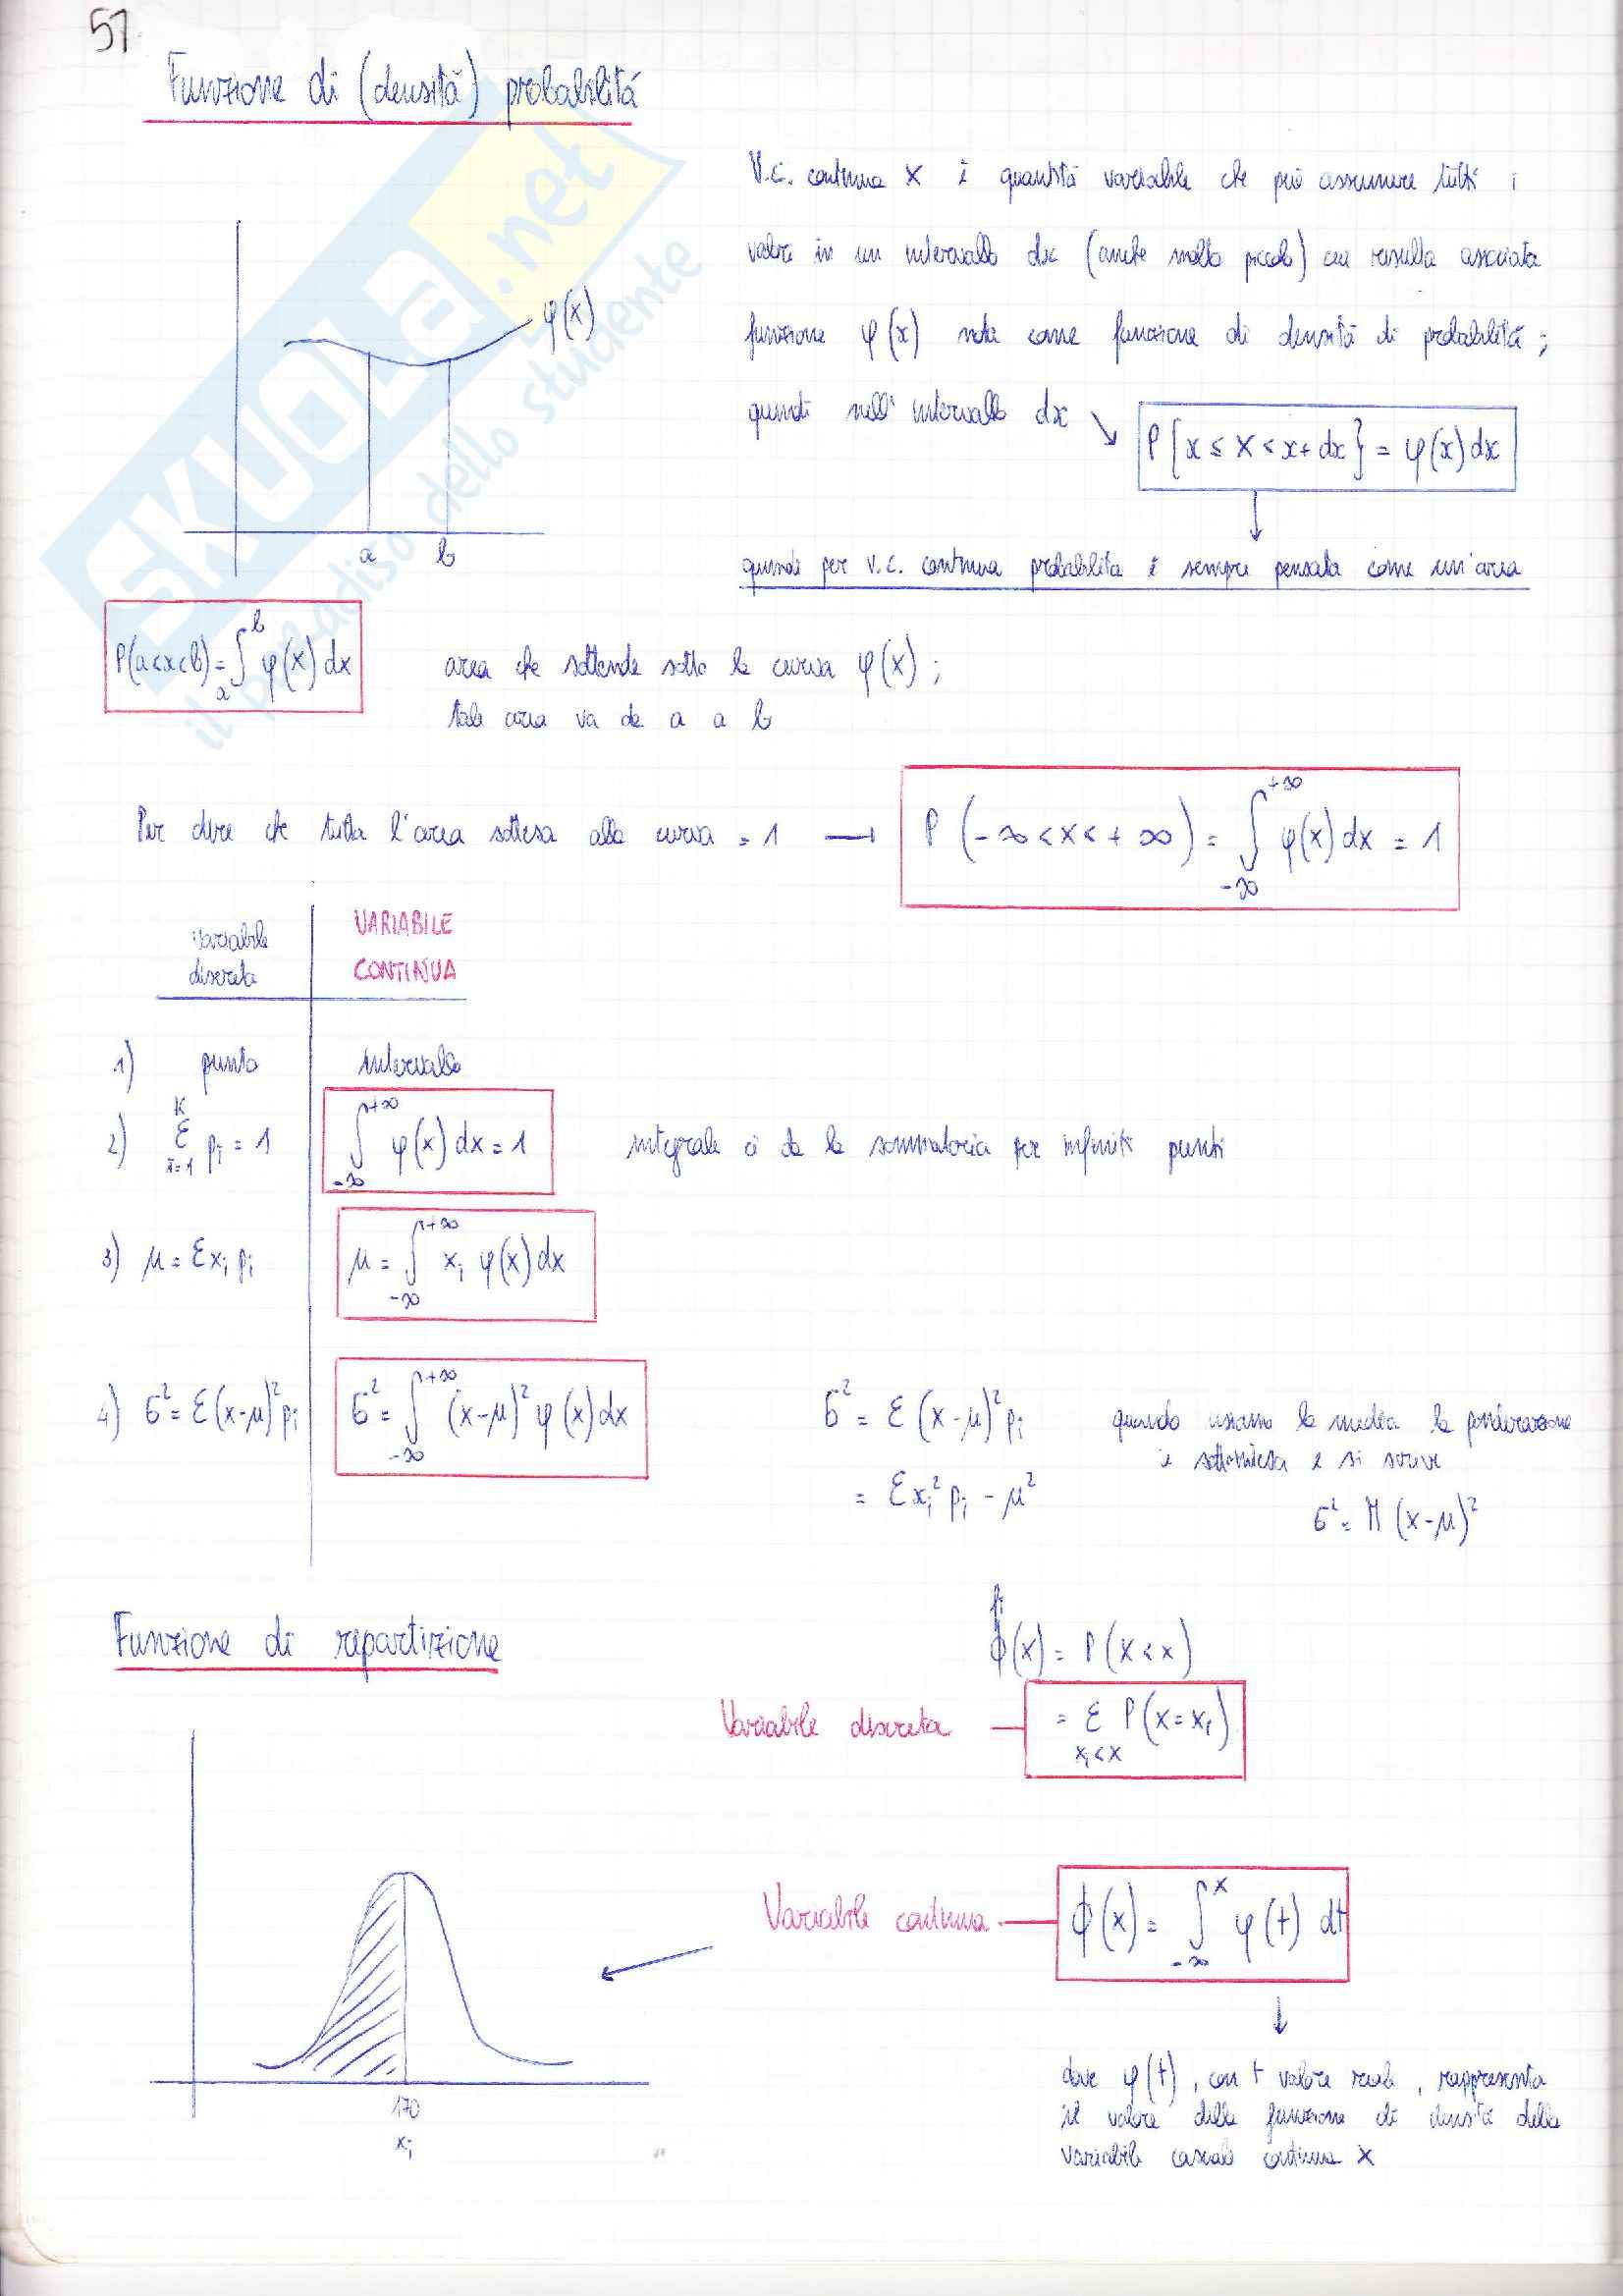 51
Funzione di (densità) probabilità
V.C. continua X è quantità variabile che può assumere tutti i
valori in un intervallo dx (anche molto piccolo) cui risulta associata
funzione φ(x) nota come funzione di densità di probabilità;
quindi nell'intervallo dx ↘ P{x ≤ X < x+dx} = φ(x)dx
φ(x)
a b
quindi per V.C. continua probabilità è sempre pensata come un'area
P(a<x<b) = ∫_a^b φ(x) dx
area che sottende sotto la curva φ(x);
tale area va da a a b
Per dire che tutta l'area sottesa alla curva = 1 → P(-∞<x<+∞) = ∫_{-∞}^{+∞} φ(x) dx = 1
variabile discreta
VARIABILE CONTINUA
1) punto intervallo
2) Σ_{i=1}^{K} p_i = 1 ∫_{-∞}^{+∞} φ(x) dx = 1 integrale ci da la sommatoria per infiniti punti
3) μ = Σ x_i p_i μ = ∫_{-∞}^{+∞} x_i φ(x) dx
4) σ² = Σ (x-μ)² p_i σ² = ∫_{-∞}^{+∞} (x-μ)² φ(x) dx
σ² = Σ (x-μ)² p_i
= Σ x_i² p_i - μ²
quando usiamo la media la ponderazione
è sottointesa e si scrive
σ² = M (x-μ)²
Funzione di repartizione
fi
ϕ(x) = P(X<x)
Variabile discreta = Σ_{x_i<x} P(x=x_i)
Variabile continua ϕ(x) = ∫_{-∞}^{x} φ(t) dt
170
x_i
dove φ(t), con t valore reale, rappresenta
il valore della funzione di densità della
variabile casuale continua X
SKUOLA.net
il paradiso dello studente